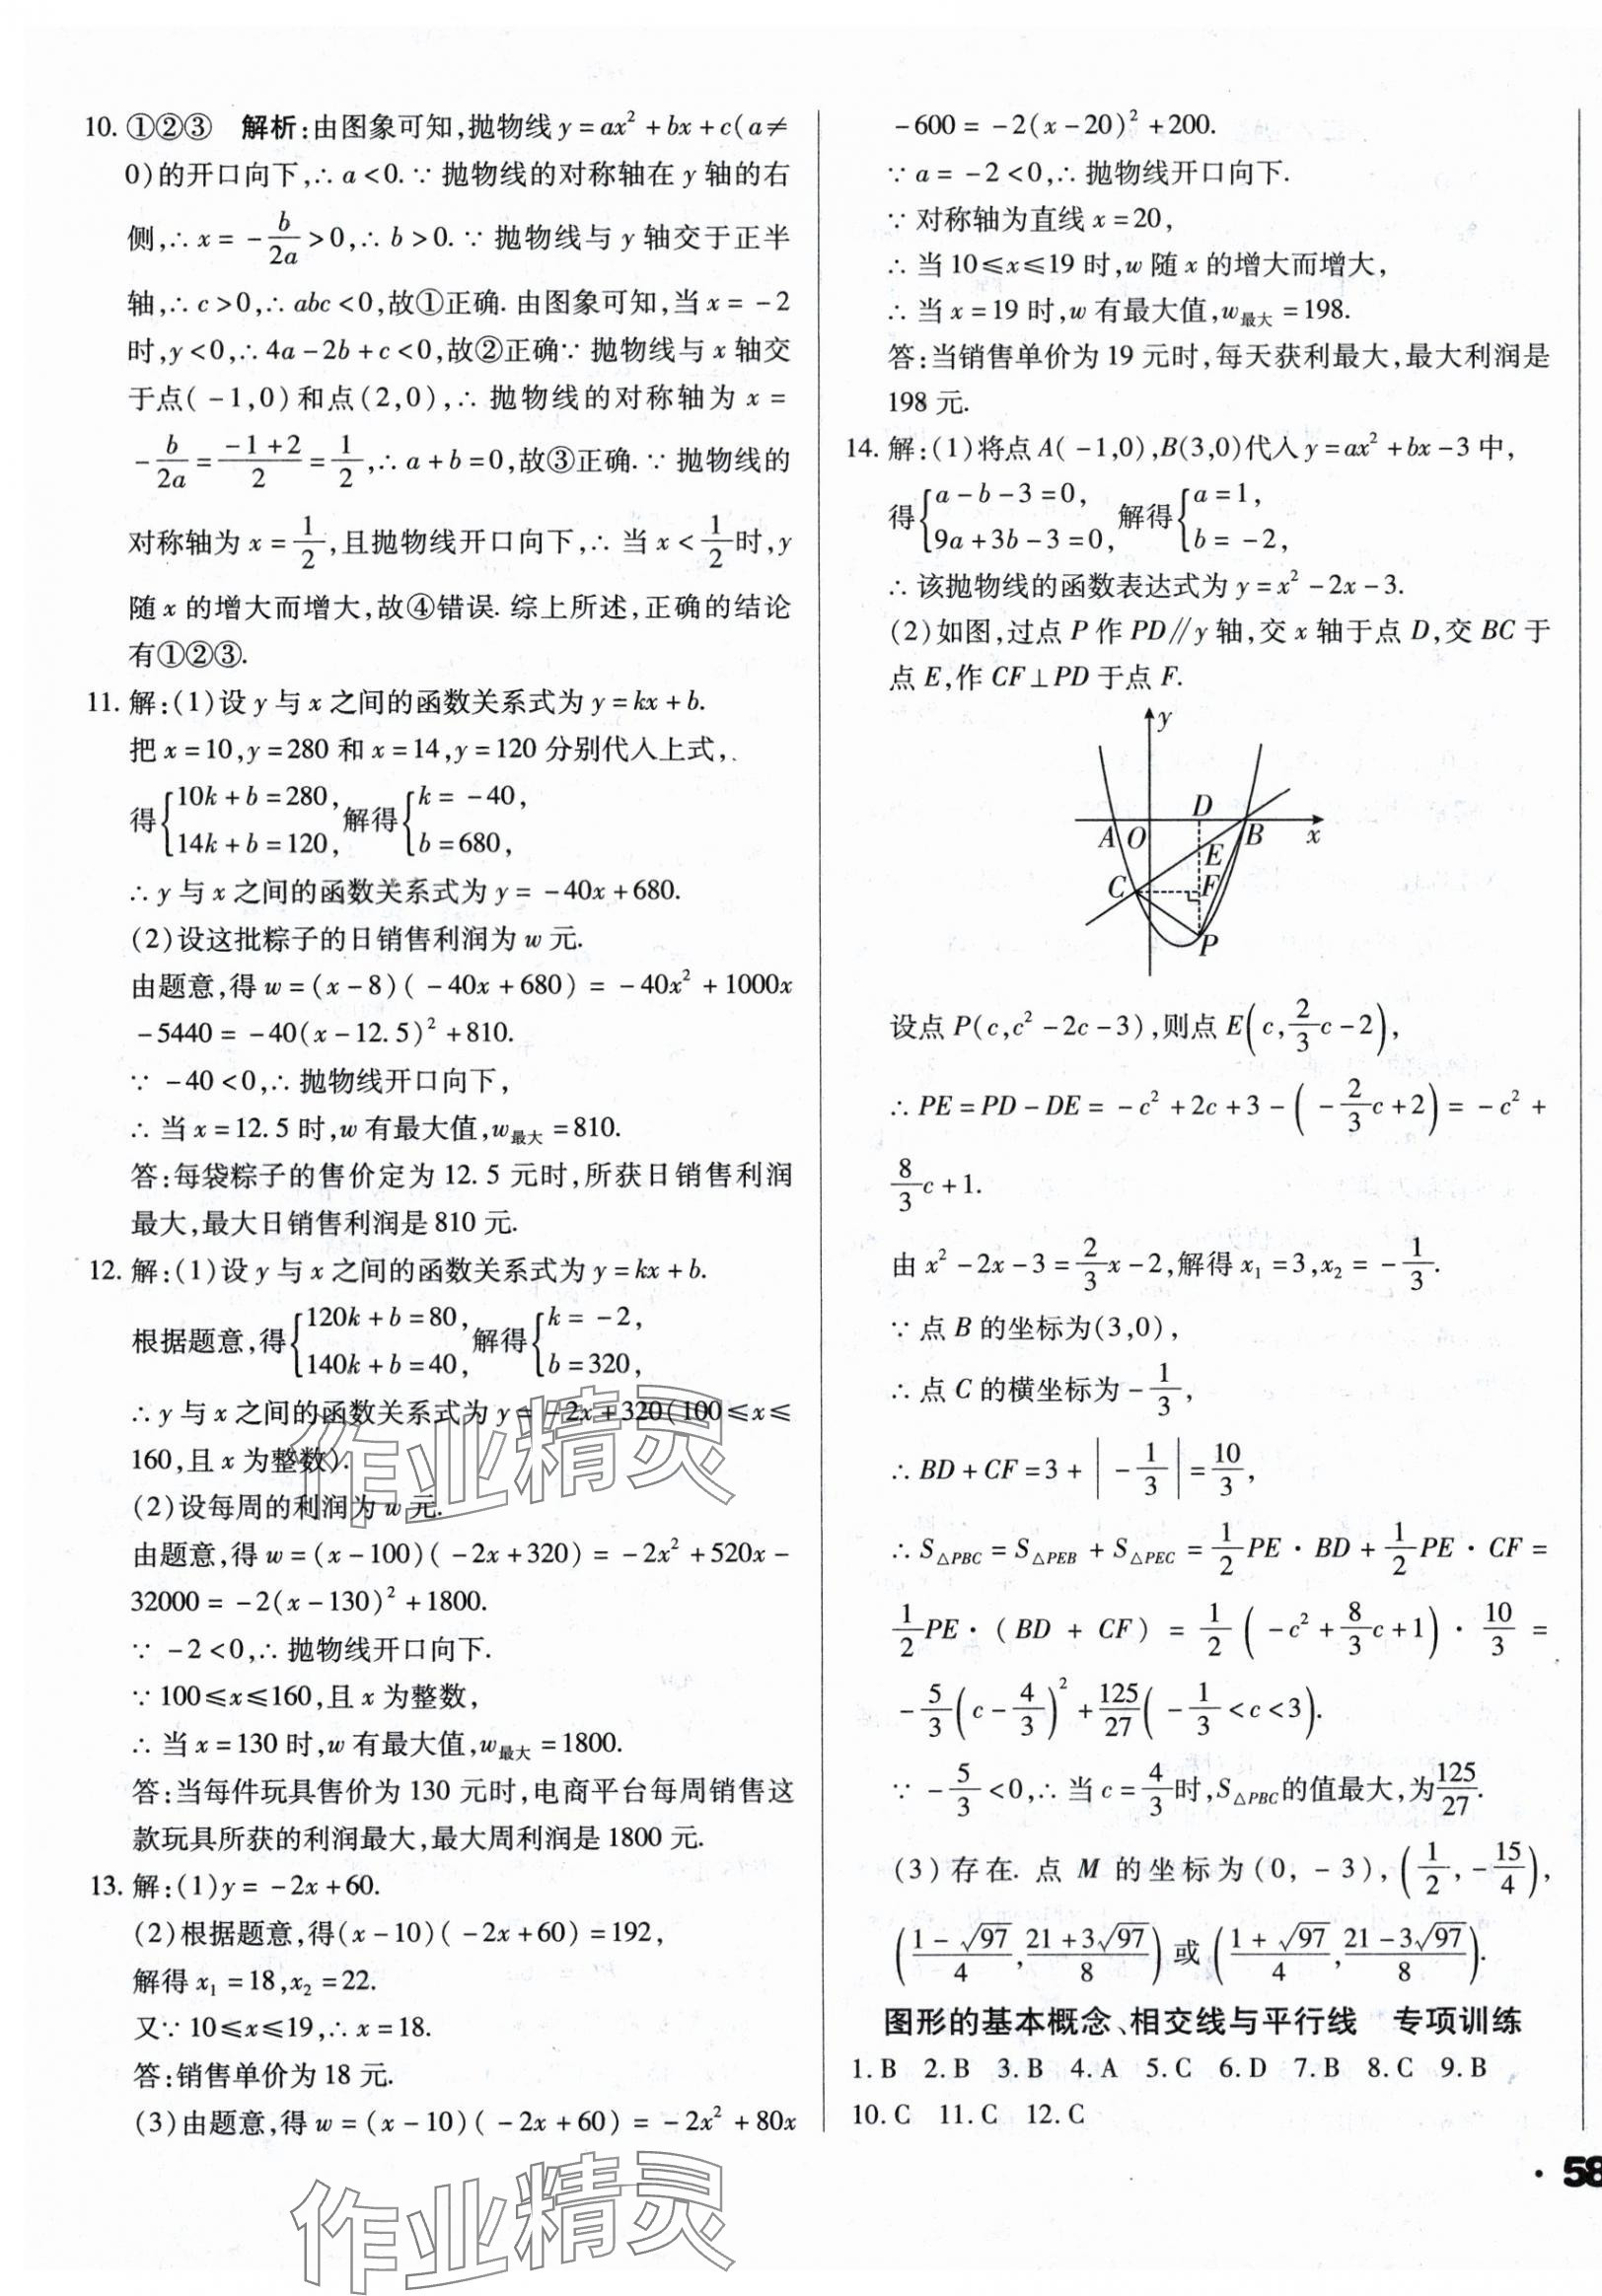 10. ①②③　解析:由图象可知,抛物线 y=ax²+bx+c(a≠
0)的开口向下,∴a<0.∵抛物线的对称轴在 y 轴的右
侧,∴x=-b/2a>0,∴b>0.∵抛物线与 y 轴交于正半
轴,∴c>0,∴abc<0,故①正确.由图象可知,当 x=-2
时,y<0,∴4a-2b+c<0,故②正确∵抛物线与 x 轴交
于点(-1,0)和点(2,0),∴抛物线的对称轴为 x=
-b/2a=(-1+2)/2=1/2,∴a+b=0,故③正确.∵抛物线的
对称轴为 x=1/2,且抛物线开口向下,∴当 x<1/2时,y
随 x 的增大而增大,故④错误.综上所述,正确的结论
有①②③.
11. 解:(1)设 y 与 x 之间的函数关系式为 y=kx+b.
把 x=10,y=280 和 x=14,y=120 分别代入上式,
得{10k+b=280, 14k+b=120, 解得{k=-40, b=680,
∴y 与 x 之间的函数关系式为 y=-40x+680.
(2)设这批粽子的日销售利润为 w 元.
由题意,得 w=(x-8)(-40x+680)=-40x²+1000x
-5440=-40(x-12.5)²+810.
∵-40<0,∴抛物线开口向下,
∴当 x=12.5 时,w 有最大值,w最大=810.
答:每袋粽子的售价定为 12.5 元时,所获日销售利润
最大,最大日销售利润是 810 元.
12. 解:(1)设 y 与 x 之间的函数关系式为 y=kx+b.
根据题意,得{120k+b=80, 140k+b=40, 解得{k=-2, b=320,
∴y 与 x 之间的函数关系式为 y=-2x+320(100≤x≤
160,且 x 为整数).
(2)设每周的利润为 w 元.
由题意,得 w=(x-100)(-2x+320)=-2x²+520x-
32000=-2(x-130)²+1800.
∵-2<0,∴抛物线开口向下.
∵100≤x≤160,且 x 为整数,
∴当 x=130 时,w 有最大值,w最大=1800.
答:当每件玩具售价为 130 元时,电商平台每周销售这
款玩具所获的利润最大,最大周利润是 1800 元.
13. 解:(1)y=-2x+60.
(2)根据题意,得(x-10)(-2x+60)=192,
解得 x₁=18,x₂=22.
又∵10≤x≤19,∴x=18.
答:销售单价为 18 元.
(3)由题意,得 w=(x-10)(-2x+60)=-2x²+80x
-600=-2(x-20)²+200.
∵a=-2<0,∴抛物线开口向下.
∵对称轴为直线 x=20,
∴当 10≤x≤19 时,w 随 x 的增大而增大,
∴当 x=19 时,w 有最大值,w最大=198.
答:当销售单价为 19 元时,每天获利最大,最大利润是
198 元.
14. 解:(1)将点 A(-1,0),B(3,0)代入 y=ax²+bx-3 中,
得{a-b-3=0, 9a+3b-3=0, 解得{a=1, b=-2,
∴该抛物线的函数表达式为 y=x²-2x-3.
(2)如图,过点 P 作 PD∥y 轴,交 x 轴于点 D,交 BC 于
点 E,作 CF⊥PD 于点 F.
y
D
A O B x
E
C F
P
设点 P(c,c²-2c-3),则点 E(c,2/3c-2),
∴PE=PD-DE=-c²+2c+3-(-2/3c+2)=-c²+
8/3c+1.
由 x²-2x-3=2/3x-2,解得 x₁=3,x₂=-1/3.
∵点 B 的坐标为(3,0),
∴点 C 的横坐标为-1/3,
∴BD+CF=3+|-1/3|=10/3,
∴S△PBC=S△PEB+S△PEC=1/2PE·BD+1/2PE·CF=
1/2PE·(BD+CF)=1/2(-c²+8/3c+1)·10/3=
-5/3(c-4/3)²+125/27(-1/3<c<3).
∵-5/3<0,∴当 c=4/3时,S△PBC的值最大,为125/27.
(3)存在.点 M 的坐标为(0,-3),(1/2,-15/4),
((1-√97)/4,(21+3√97)/8)或((1+√97)/4,(21-3√97)/8).
图形的基本概念、相交线与平行线　专项训练
1.B 2.B 3.B 4.A 5.C 6.D 7.B 8.C 9.B
10.C 11.C 12.C
·58
作业精灵
作业精灵